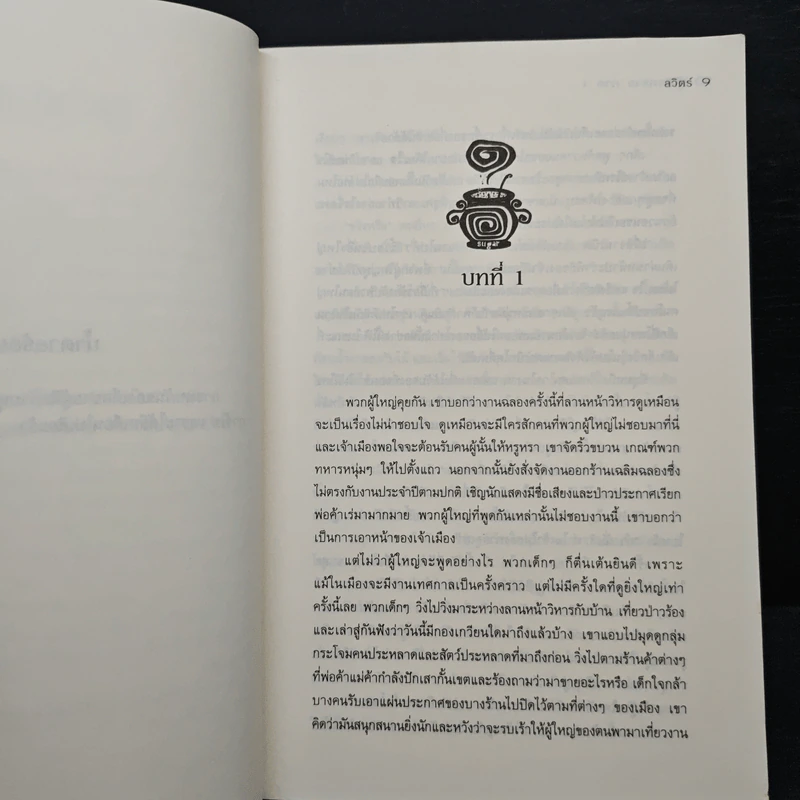 ลวิตร์ 9
sugar
บทที่ 1
พวกผู้ใหญ่คุยกัน เขาบอกว่างานฉลองครั้งนี้ที่ลานหน้าวิหารดูเหมือน
จะเป็นเรื่องไม่น่าชอบใจ ดูเหมือนจะมีใครสักคนที่พวกผู้ใหญ่ไม่ชอบมาที่นี่
และเจ้าเมืองพอใจจะต้อนรับคนผู้นั้นให้หรูหรา เขาจัดริ้วขบวน เกณฑ์พวก
ทหารหนุ่มๆ ให้ไปตั้งแถว นอกจากนั้นยังสั่งจัดงานออกร้านเฉลิมฉลองซึ่ง
ไม่ตรงกับงานประจำปีตามปกติ เชิญนักแสดงมีชื่อเสียงและป่าวประกาศเรียก
พ่อค้าเร่มามากมาย พวกผู้ใหญ่ที่พูดกันเหล่านั้นไม่ชอบงานนี้ เขาบอกว่า
เป็นการเอาหน้าของเจ้าเมือง
แต่ไม่ว่าผู้ใหญ่จะพูดอย่างไร พวกเด็กๆ ก็ตื่นเต้นยินดี เพราะ
แม้ในเมืองจะมีงานเทศกาลเป็นครั้งคราว แต่ไม่มีครั้งใดที่ดูยิ่งใหญ่เท่า
ครั้งนี้เลย พวกเด็กๆ วิ่งไปวิ่งมาระหว่างลานหน้าวิหารกับบ้าน เที่ยวป่าวร้อง
และเล่าสู่กันฟังว่าวันนี้มีกองเกวียนใดมาถึงแล้วบ้าง เขาแอบไปมุดดูกลุ่ม
กระโจมคนประหลาดและสัตว์ประหลาดที่มาถึงก่อน วิ่งไปตามร้านค้าต่างๆ
ที่พ่อค้าแม่ค้ากำลังปักเสากั้นเขตและร้องถามว่ามาขายอะไรหรือ เด็กใจกล้า
บางคนรับเอาแผ่นประกาศของบางร้านไปปิดไว้ตามที่ต่างๆ ของเมือง เขา
คิดว่ามันสนุกสนานยิ่งนักและหวังว่าจะรบเร้าให้ผู้ใหญ่ของตนพามาเที่ยวงาน